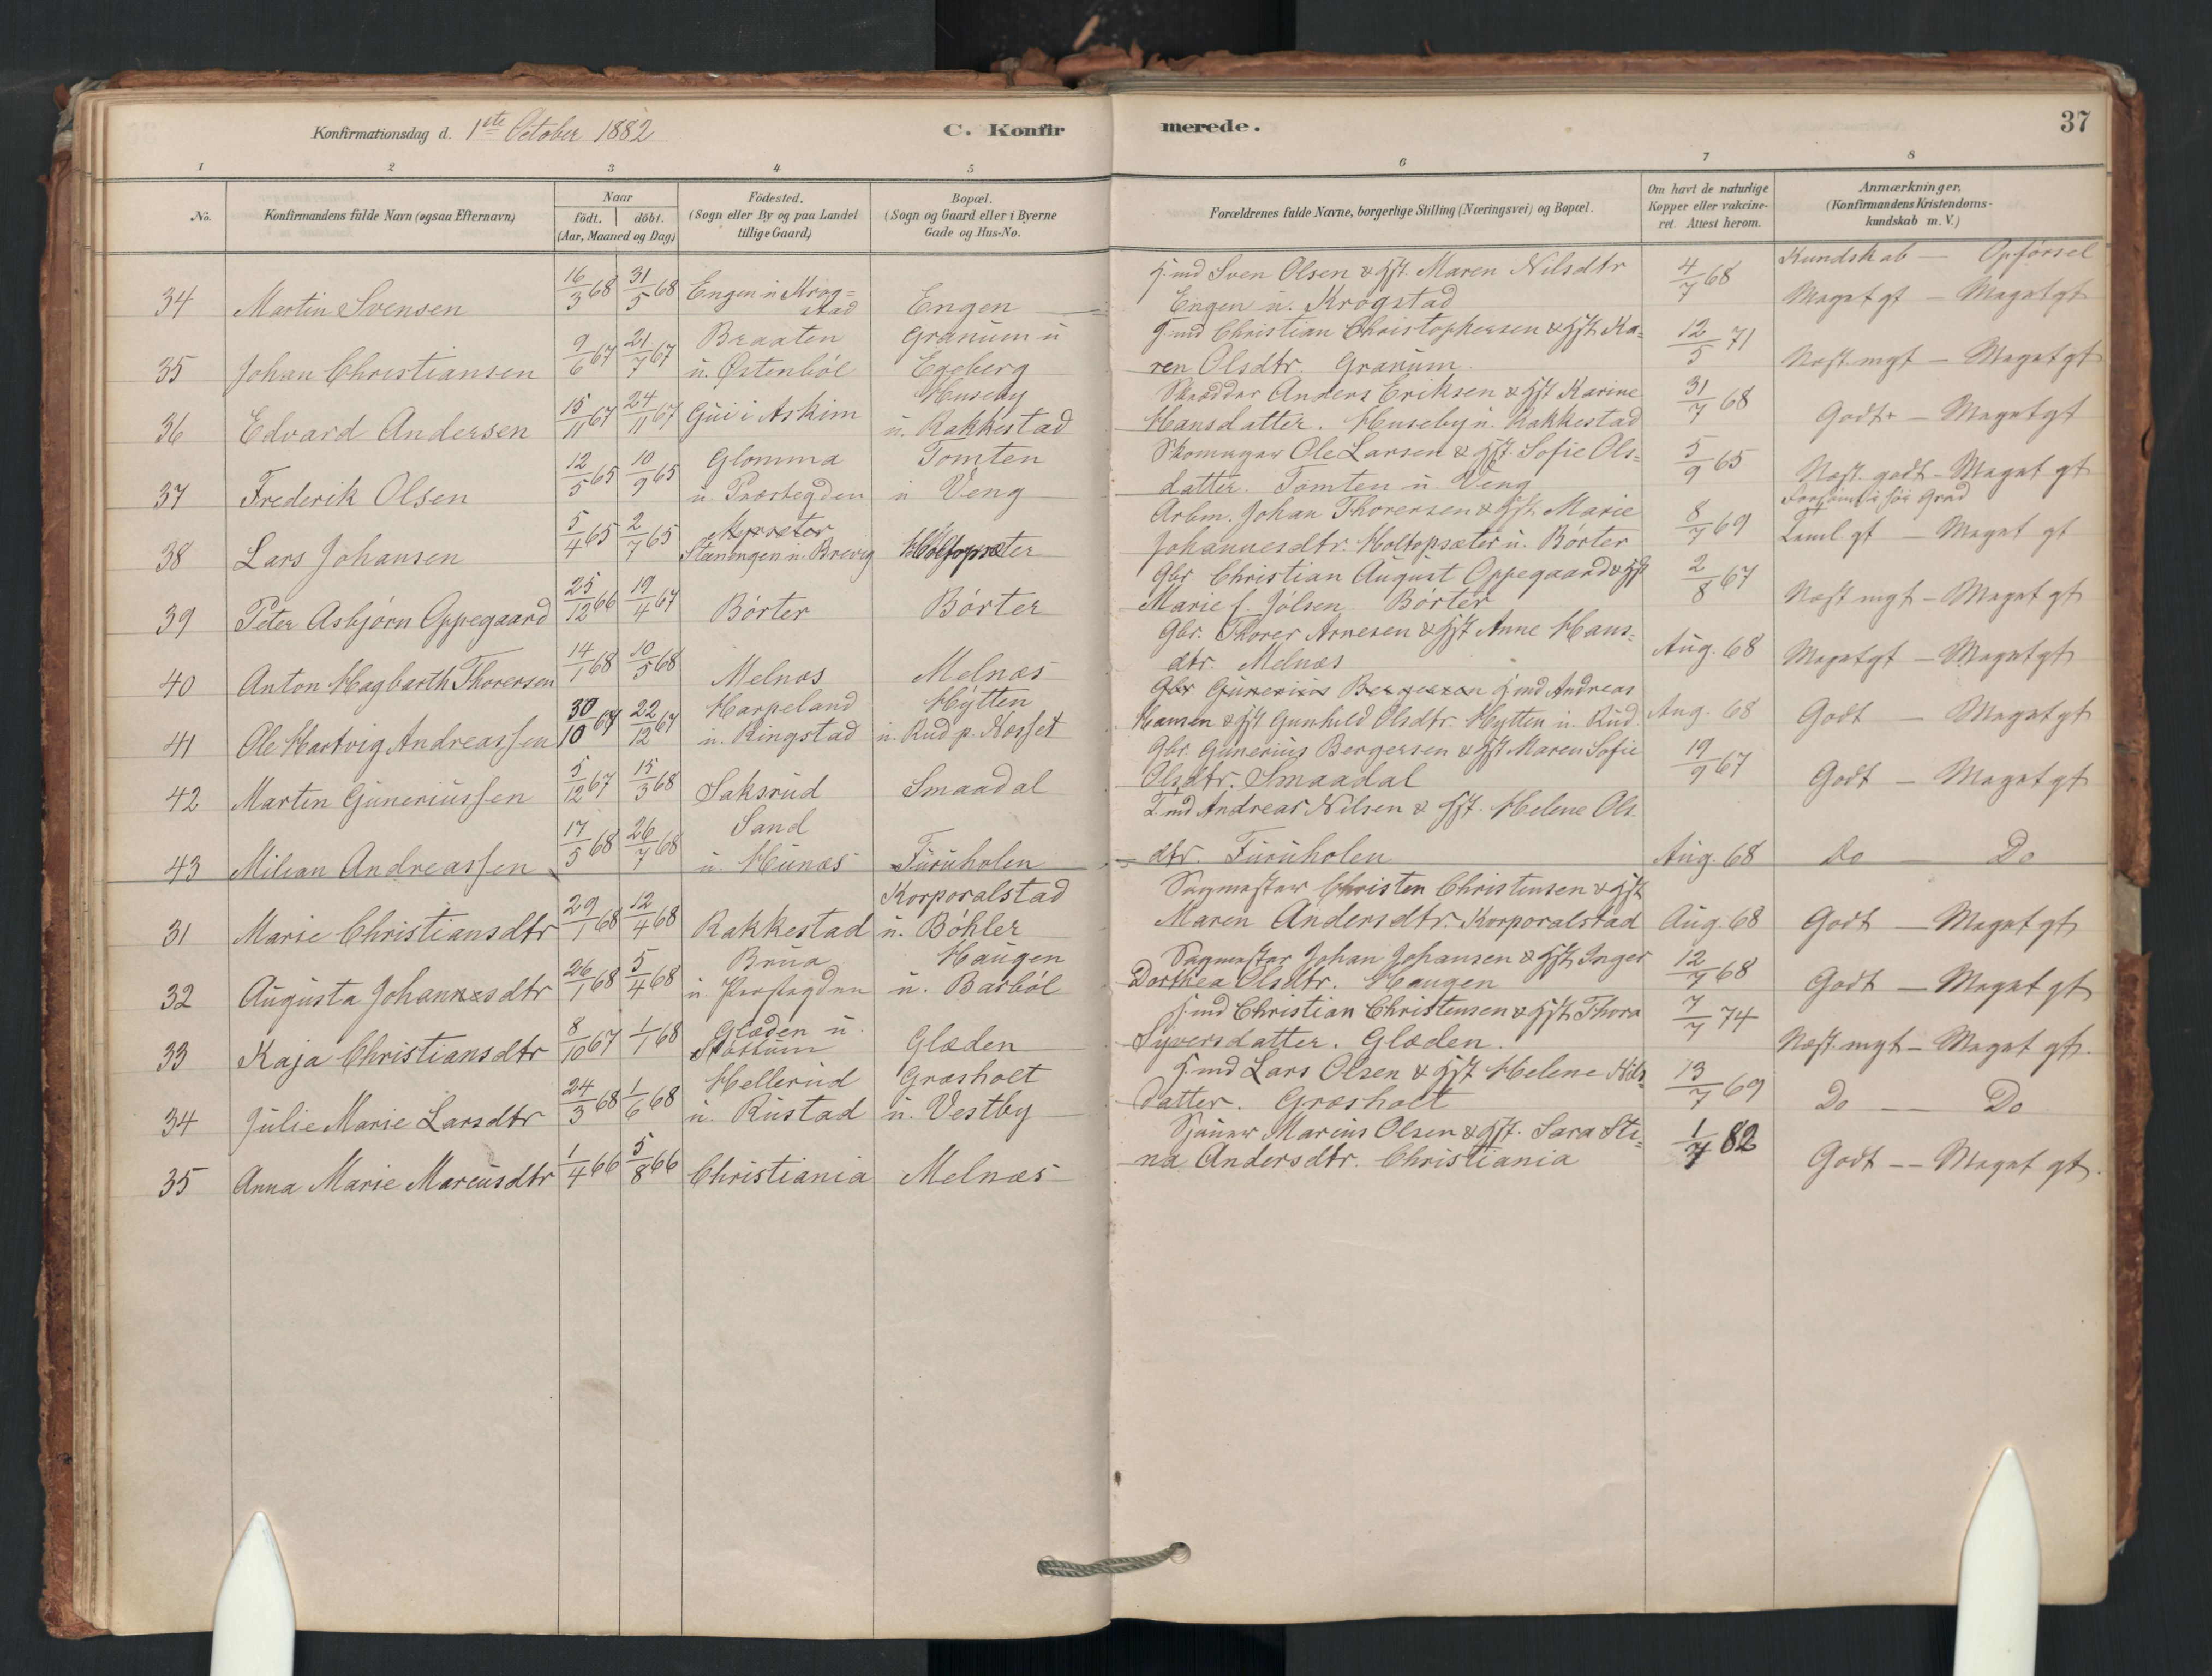 Konfirmationsdag d. 1ste October 1882
C. Konfir
merede.
37
1 2 3 4 5 6 7 8
No.
Konfirmandens fulde Navn (ogsaa Efternavn)
Naar
födt. döbt.
(Aar, Maaned og Dag)
Födested.
(Sogn eller By og paa Landet
tillige Gaard)
Bopæl.
(Sogn og Gaard eller i Byerne
Gade og Hus-No.
Forældrenes fulde Navne, borgerlige Stilling (Næringsvei) og Bopæl.
Om havt de naturlige
Kopper eller vakcine-
ret. Attest herom.
Anmærkninger.
(Konfirmandens Kristendoms-
kundskab m. V.)
Kundskab — Opførsel
34 Martin Svensen 16/3 68 31/5 68 Engen u Krog=
stad Engen
Hmd Sven Olsen & Hst. Maren Nilsdtr
Engen u. Krogstad
4/7 68 Megetgt — Megetgt
35 Johan Christiansen 9/6 67 21/7 67 Braaten
u. Østenböl
Granum u
Egeberg
Gmd Christian Christophersen & Hst. Ka=
ren Olsdtr. Granum.
12/5 71 Næst mgt — Megetgt
36 Edvard Andersen 15/11 67 24/11 67 Gui i Askim
Huseby
u. Rakkestad
Skrædder Anders Eriksen & Hst Karine
Hansdatter. Huseby u. Rakkestad
31/7 68 Godt — Megetgt
37 Frederik Olsen 12/5 65 10/9 65 Glomma
u. Præstegden
Tomten
u Veng
Skomager Ole Larsen & Hst. Sofie Ols=
datter. Tomten u Veng
5/9 65 Næst. godt — Meget gt
38 Lars Johansen 5/4 65 2/7 65
Stæningen u. Brevig Holtopsæter
Arbm. Johan Thorersen & Hst. Marie
Johannesdtr. Holtopsæter u. Börter
8/7 69 i høi Grad
Taml. gt — Meget gt
39 Peter Asbjörn Oppegaard 25/12 66 19/4 67 Börter Börter
Gbr. Christian August Oppegaard & Hst
Marie f. Jölsen Börter
2/8 67 Næst mgt — Meget gt
40 Anton Hagbarth Thorersen 14/1 68 10/5 68 Melnæs Melnæs
Gbr. Thorer Arnesen & Hst Anne Hans=
dtr. Melnæs
Aug. 68 Megetgt — Megetgt
41 Ole Hartvig Andreassen 30/10 67 22/12 67 Harpeland
u. Ringstad
Hytten
u. Rud p. Næsset
Gbr Gunerius Bergersen Hmd Andreas
Hansen & Hst Gunhild Olsdtr. Hytten u. Rud.
Aug. 68 Godt — Megetgt
42 Martin Guneriussen 5/12 67 15/3 68 Saksrud Smaadal
Gbr. Gunerius Bergersen & Hst Maren Sofie
Olsdtr. Smaadal
19/9 67 Godt — Megetgt
43 Milian Andreassen 17/5 68 26/7 68 Sand
u. Hunæs Furuholen
Andreas Nilsen & Hst. Helene Ols.
dtr. Furuholen
Aug. 68 Do — Do
31 Marie Christiansdtr 29/1 68 12/4 68 Rakkestad
Korporalstad
u. Böhler
Sagmester Christen Christensen & Hst
Maren Andersdtr. Korporalstad
Aug. 68 Godt — Megetgt
32 Augusta Johannesdtr 26/1 68 5/4 68 Brua
u. Præstegden
Haugen
u. Barböl
Sagmester Johan Johansen & Hst. Inger
Dorthea Olsdtr. Haugen
12/7 68 Godt — Meget gt
33 Kaja Christiansdtr 8/10 67 1/1 68 Glæden u.
Stöttum Glæden
Hmd Christian Christensen & Hst. Thora
Syversdatter. Glæden.
7/7 74 Næst. mgt — Meget gt.
34 Julie Marie Larsdtr 24/3 68 1/6 68 Hellerud
u. Rustad
Græsholt
u. Vestby
Hmd Lars Olsen & Hst Helene Nils=
datter. Græsholt
13/7 69 Do — Do
35 Anna Marie Mariusdtr 1/4 66 5/8 66 Christiania Melnæs
Sjauer Marius Olsen & Hst. Sara Sti=
na Andersdtr. Christiania
1/7 82 Godt — Meget gt.